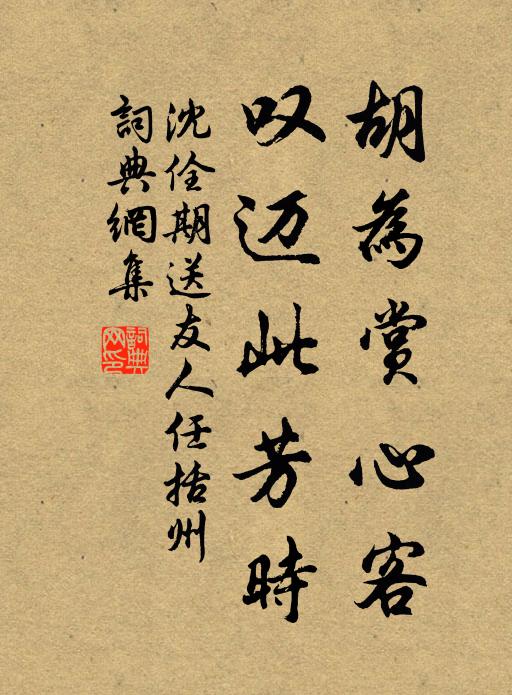 胡為賞心客
叹迈此芳時
沈佺期送友人任括州
詞典網集
詞典网印